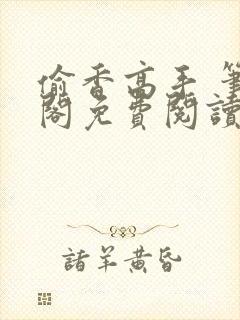 偷香高手 筆
閣免費閱讀
諸羊黃昏